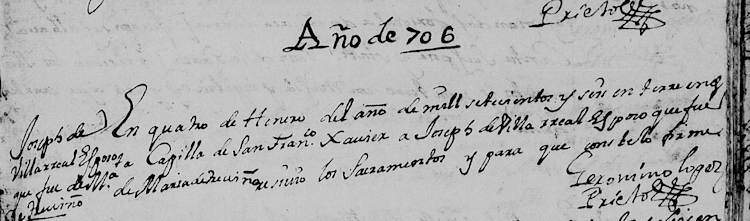 Prieto
Año de 706
Joseph de
Villarreal Esposo
que fue de M.a
de treviño
En quatro de Henero del año de mill setecientos y seis en terre en
la Capilla de San Fran.co Xavier a Joseph de Villarreal Esposo que fue
de Maria de treviño resivio los Sacramentos y para que conste lo firme
Jeronimo lopez
Prieto